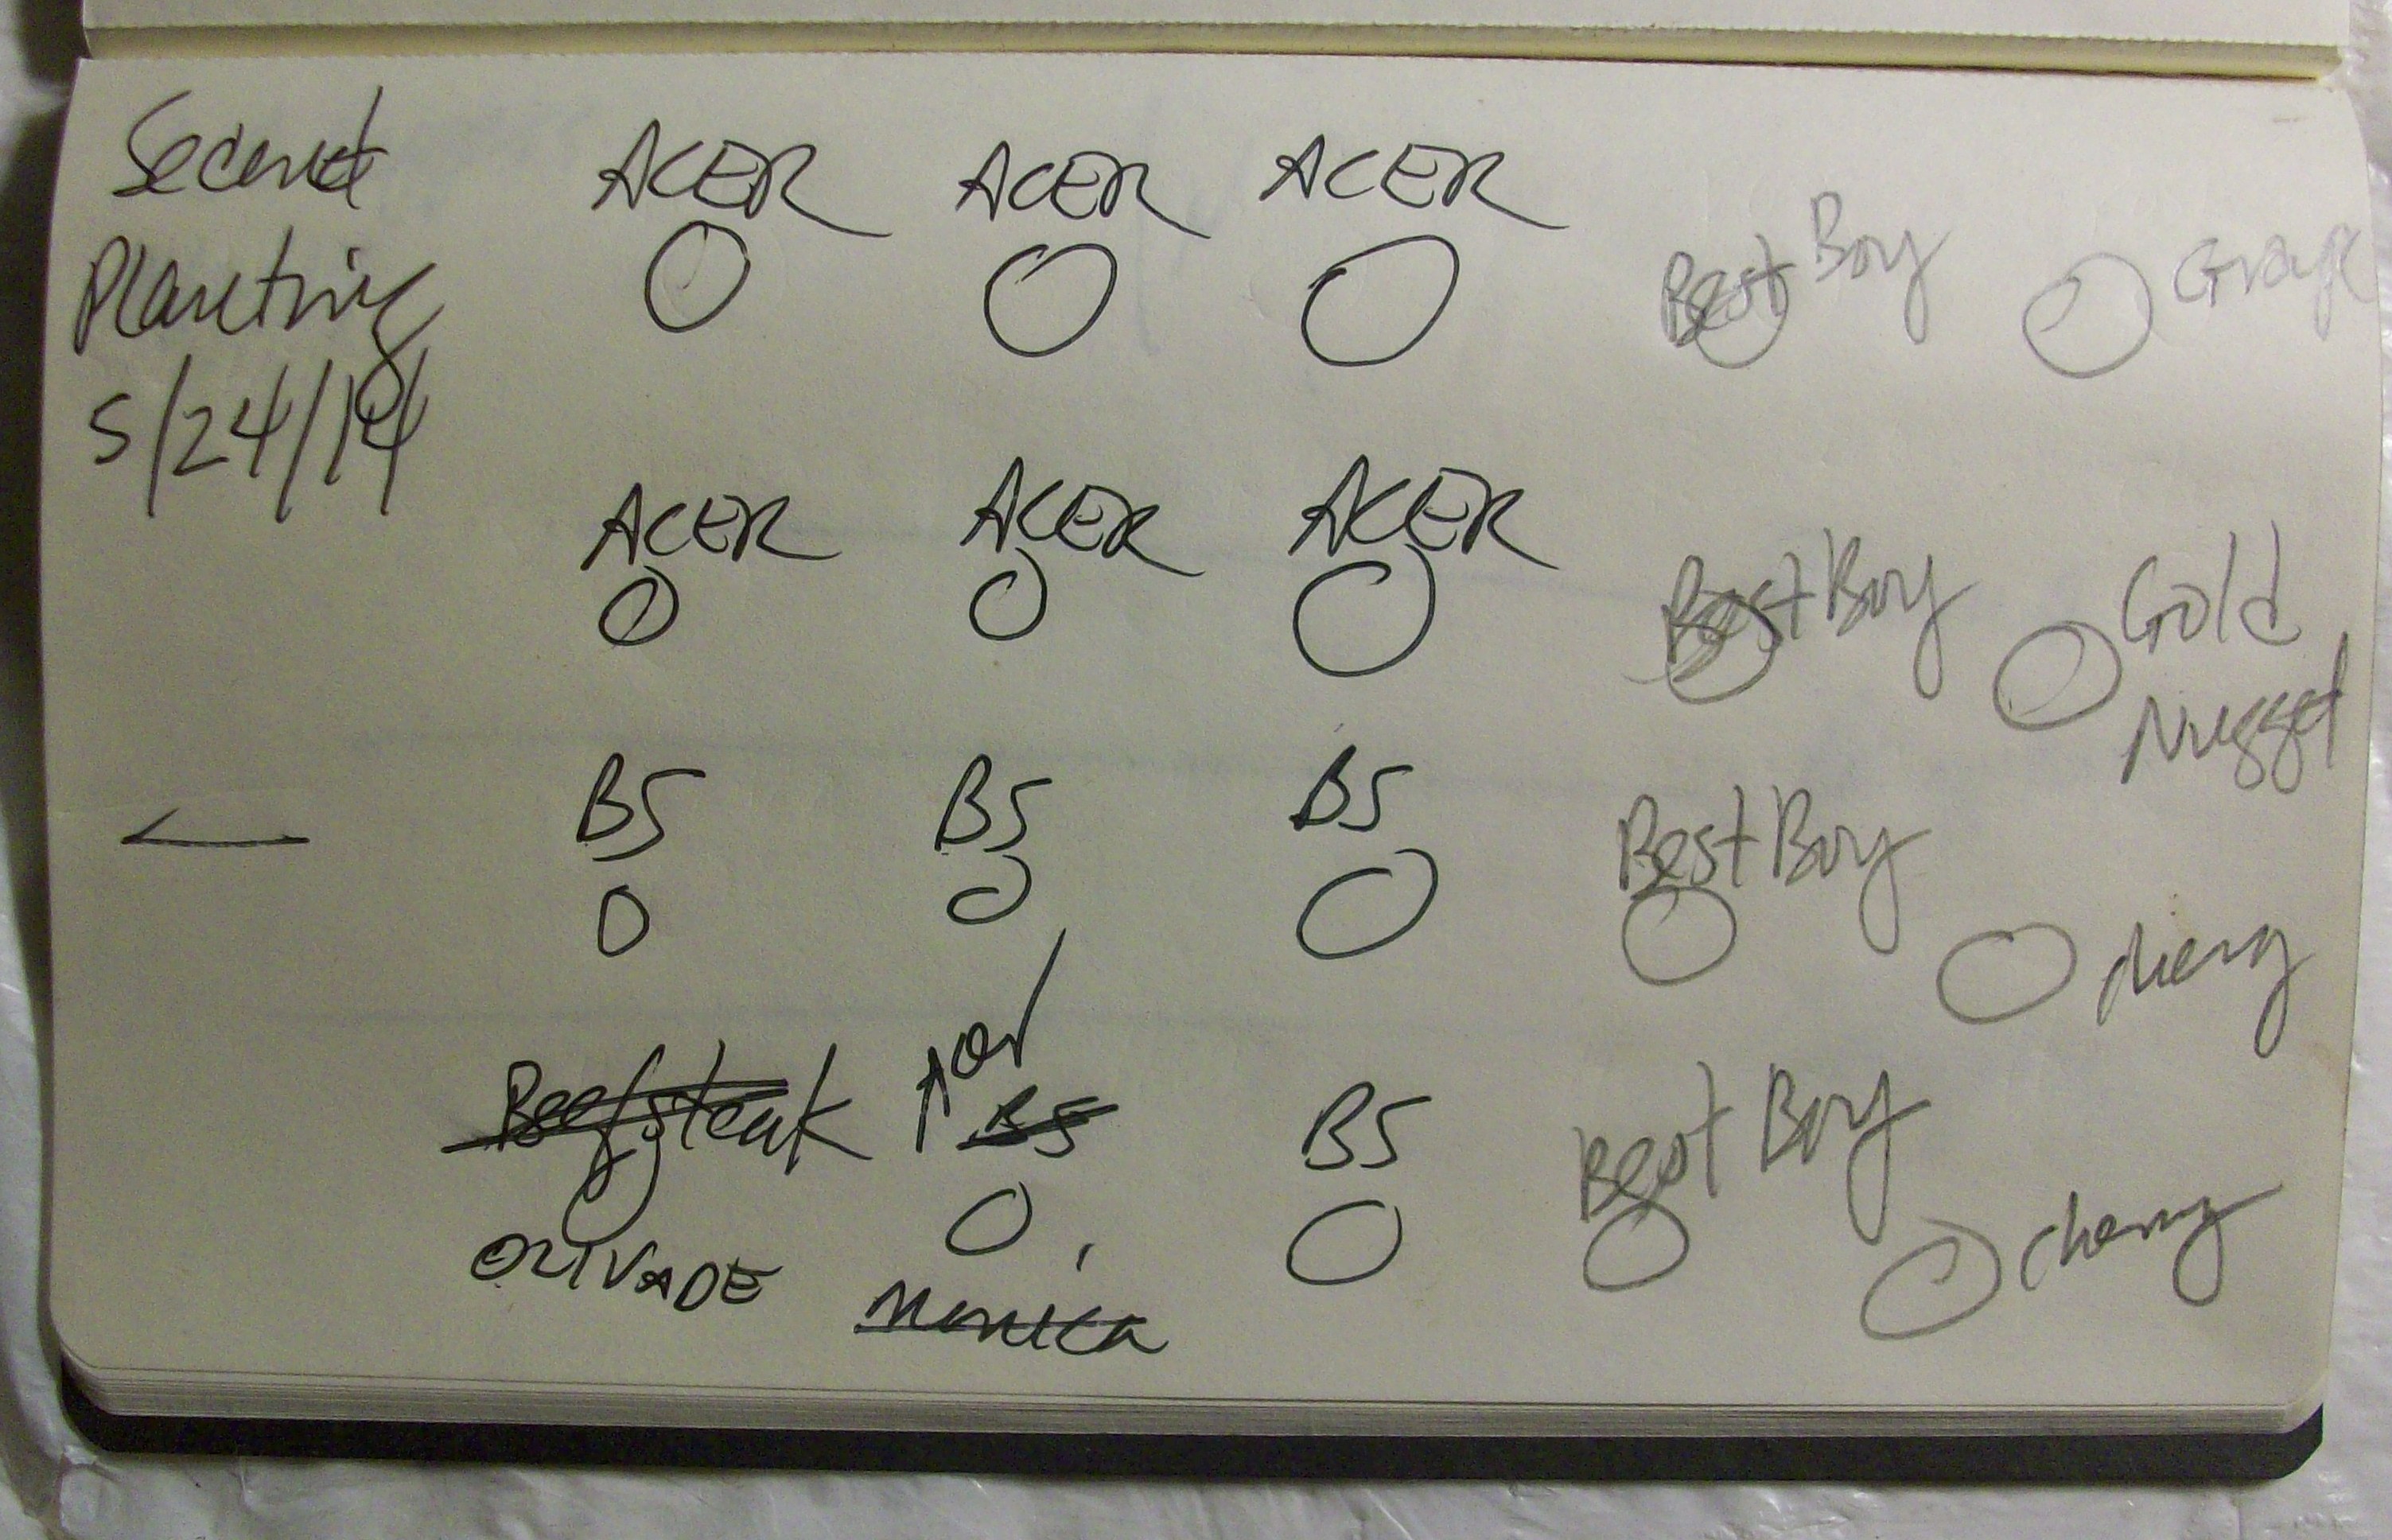 Second
Planting
5/24/14
ACER ACER ACER
Best Boy Grape
ACER ACER ACER
Best Boy Gold
Nugget
BS BS BS
Best Boy
cherry
Beefsteak or BS BS Best Boy
cherry
OLIVADE
Monica